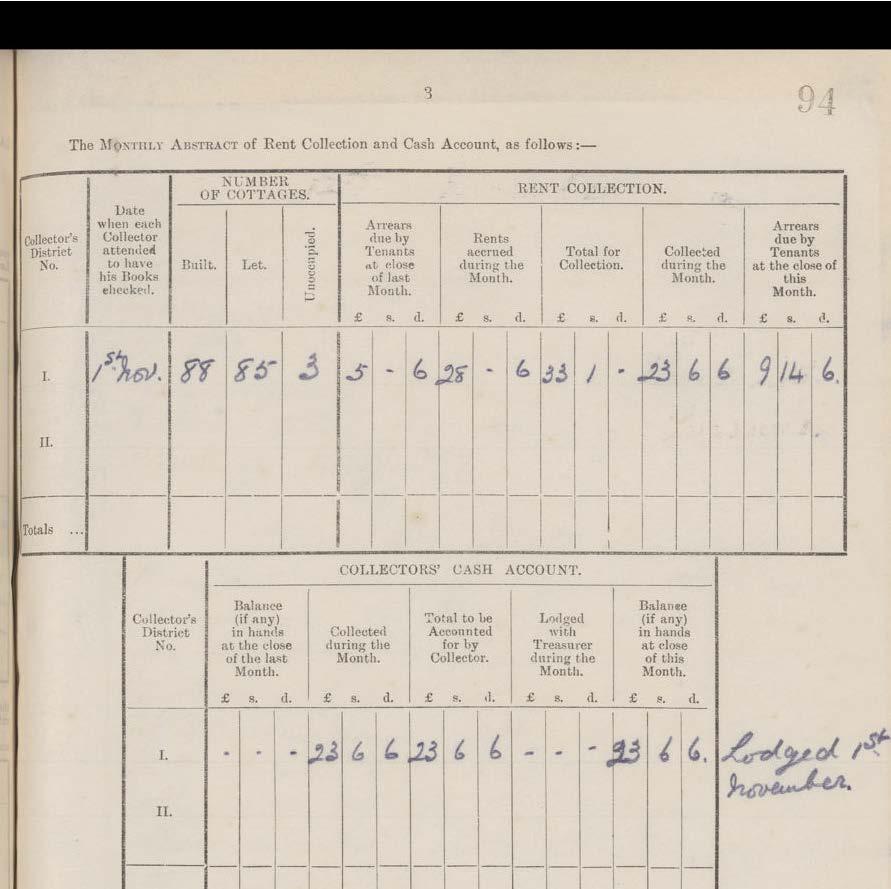 3
94
The MONTHLY ABSTRACT of Rent Collection and Cash Account, as follows:—
Collector's District No.
Date when each Collector attended to have his Books checked.
NUMBER OF COTTAGES.
Built.
Let.
Unoccupied.
RENT COLLECTION.
Arrears due by Tenants at close of last Month.
Rents accrued during the Month.
Total for Collection.
Collected during the Month.
Arrears due by Tenants at the close of this Month.
£ s. d. £ s. d. £ s. d. £ s. d. £ s. d.
I. 1st Nov. 88 85 3 5 - 6 28 - 6 33 1 - 23 6 6 9 14 6.
II.
Totals ...
COLLECTORS' CASH ACCOUNT.
Collector's District No.
Balance (if any) in hands at the close of the last Month.
Collected during the Month.
Total to be Accounted for by Collector.
Lodged with Treasurer during the Month.
Balance (if any) in hands at close of this Month.
£ s. d. £ s. d. £ s. d. £ s. d. £ s. d.
I. - - - 23 6 6 23 6 6 - - - 23 6 6. Lodged 1st
November.
II.